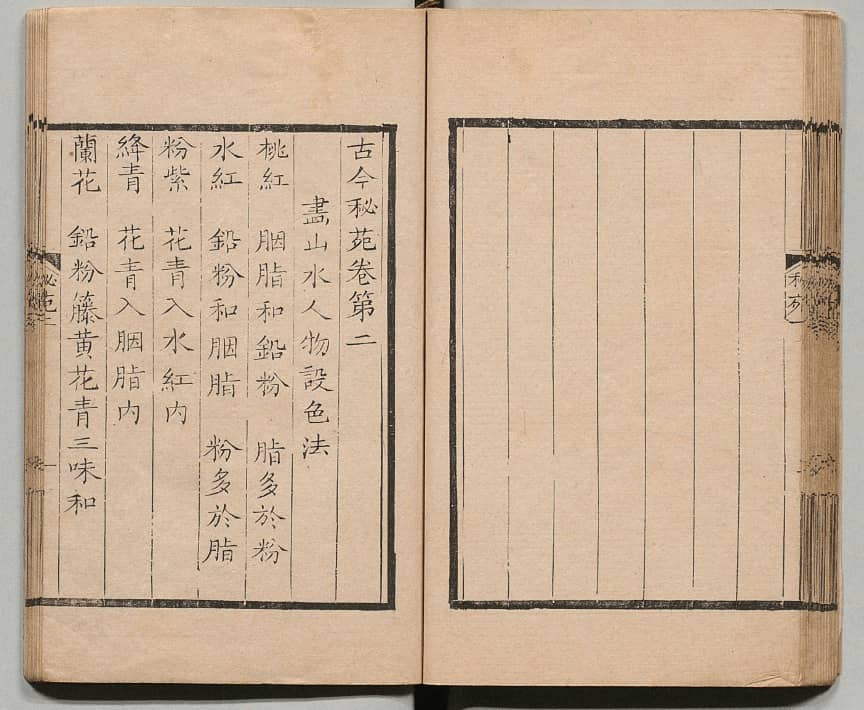 古今秘苑卷第二
畵山水人物設色法
桃紅 胭脂和鉛粉 脂多於粉
水紅 鉛粉和胭脂 粉多於脂
粉紫 花青入水紅内
絳青 花青入胭脂内
蘭花 鉛粉籐黃花青三味和